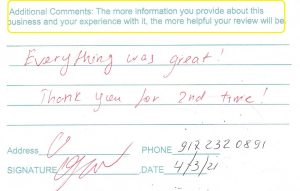 Additional Comments: The more information you provide about this
business and your experience with it, the more helpful your review will be
Everything was great!
Thank you for 2nd time!
Address PHONE 917 232 0891
SIGNATURE DATE 4/3/21